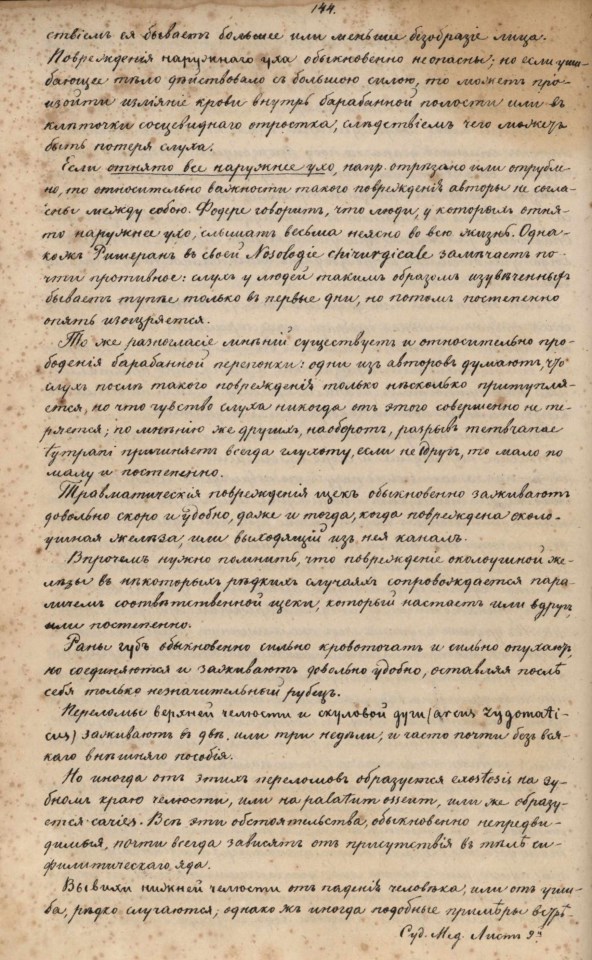 144.
ствіемъ ея бываетъ большее или меньшее безобразіе лица.
Поврежденія наружнаго уха обыкновенно неопасны; но если уши-
бающее тѣло дѣйствовало съ большою силою, то можетъ про-
изойти изліяніе крови внутрь барабанной полости или въ
клѣточки сосцевиднаго отростка, слѣдствіемъ чего можетъ
быть потеря слуха.
Если отнято все наружнее ухо, напр. отрѣзано или отрубле-
но, то относительно важности такого поврежденія авторы не согла-
сны между собою. Федере говоритъ, что люди, у которыхъ отня-
то наружнее ухо, слышатъ весьма неясно во всю жизнь. Одна-
кожъ Ришеранъ въ своей Nosologie chirurgicale замѣчаетъ по-
чти противное: слухъ у людей такимъ образомъ изувѣченныхъ
бываетъ тупѣе только въ первые дни, но потомъ постепенно
опять изощряется.
То же разногласіе мнѣній существуетъ и относительно про-
боденія барабанной перепонки: одни изъ авторовъ думаютъ, что
слухъ послѣ такого поврежденія только нѣсколько притупля-
ется, но что чувство слуха никогда отъ этого совершенно не те-
ряется; по мнѣнію же другихъ, наоборотъ, разрывъ
tympani причиняетъ всегда глухоту, если не вдругъ, то мало по
малу и постепенно.
Травматическія поврежденія щекъ обыкновенно заживаютъ
довольно скоро и удобно, даже и тогда, когда повреждена около-
ушная желѣза, или выходящій изъ нея каналъ.
Впрочемъ нужно помнить, что поврежденіе околоушной же-
лѣзы въ нѣкоторыхъ рѣдкихъ случаяхъ сопровождается пара-
личемъ соотвѣтственной щеки, который настаетъ или вдругъ,
или постепенно.
Раны губъ обыкновенно сильно кровоточатъ и сильно опухаютъ,
но соединяются и заживаютъ довольно удобно, оставляя послѣ
себя только незначительный рубецъ.
Переломы верхней челюсти и скуловой дуги (arcus zygomati-
cus) заживаютъ въ двѣ или три недѣли, и часто почти безъ вся-
каго внѣшняго пособія.
Но иногда отъ этихъ переломовъ образуется exostosis на зу-
бномъ краю челюсти, или на palatum osseum, или же образу-
ется caries. Всѣ эти обстоятельства, обыкновенно непредви-
димыя, почти всегда зависятъ отъ присутствія въ тѣлѣ си-
филитическаго яда.
Вывихи нижней челюсти отъ паденія человѣка, или отъ уши-
ба, рѣдко случаются; однако жъ иногда подобные примѣры встрѣ-
Суд. Мед. Листъ 9й